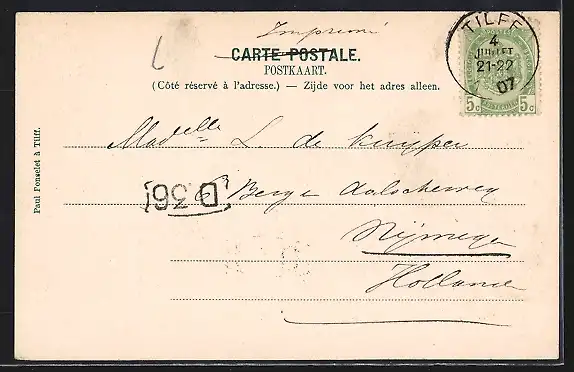 Imprimé
TILFF
4
JUILLET
21-22
07
5c 5c
CARTE POSTALE.
POSTKAART.
(Côté réservé à l'adresse.) — Zijde voor het adres alleen.
Madelle L. de Kuyper
6 Berg en Dalscheweg
D 36
Nijmegen
Holland
Paul Ponselet à Tilff.